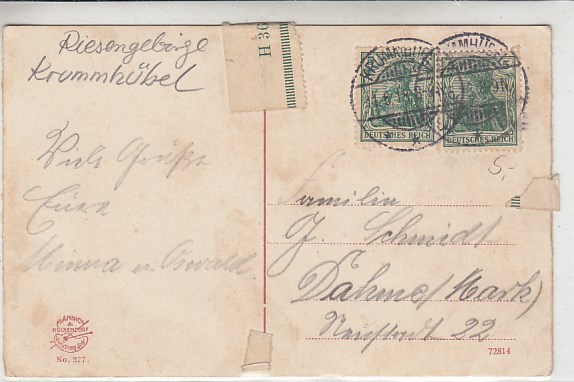 Riesengebirge
Krummhübel
H 36
KRUMMHÜBEL
DEUTSCHES REICH
DEUTSCHES REICH
5,-
Viele Grüße
Eure
Minna u. Oswald
Familie
J. Schmidt
Dahme (Mark)
Neustadt 22
No. 377.
72814